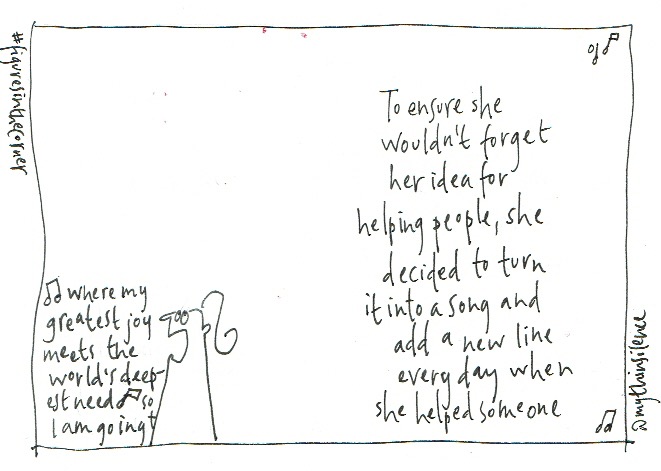 #figuresinthecorner
To ensure she
wouldn't forget
her idea for
helping people, she
decided to turn
it into a song and
add a new line
every day when
she helped someone
♫ where my
greatest joy
meets the
world's deep-
est need ♫ so
I am going t
@mythinsilence